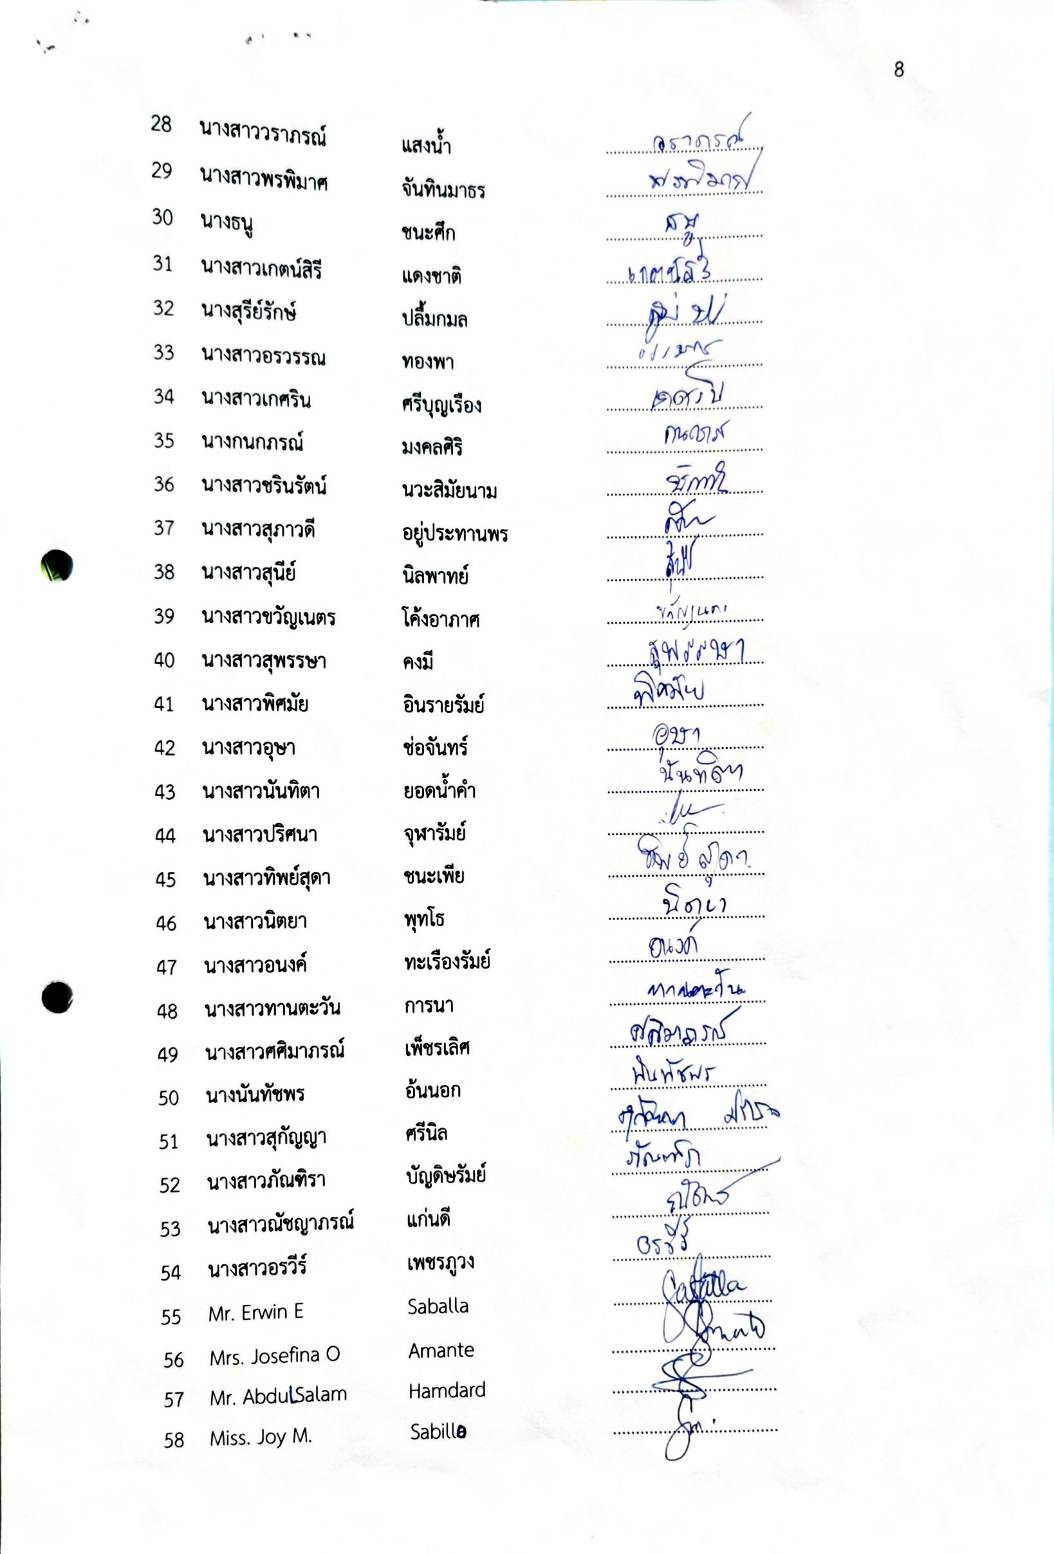 8
28 นางสาววราภรณ์ แสงน้ำ วราภรณ์
29 นางสาวพรพิมาศ จันทินมาธร พรพิมาศ
30 นางธนู ชนะศึก ธนู
31 นางสาวเกตน์สิรี แดงชาติ เกตน์สิรี
32 นางสุรีย์รักษ์ ปลื้มกมล
33 นางสาวอรวรรณ ทองพา
34 นางสาวเกศริน ศรีบุญเรือง
35 นางกนกภรณ์ มงคลศิริ
36 นางสาวชรินรัตน์ นวะสิมัยนาม
37 นางสาวสุภาวดี อยู่ประทานพร
38 นางสาวสุนีย์ นิลพาทย์
39 นางสาวขวัญเนตร โค้งอาภาศ ขวัญเนตร
40 นางสาวสุพรรษา คงมี สุพรรษา
41 นางสาวพิศมัย อินรายรัมย์ พิศมัย
42 นางสาวอุษา ช่อจันทร์ อุษา
43 นางสาวนันทิตา ยอดน้ำคำ นันทิตา
44 นางสาวปริศนา จุฬารัมย์
45 นางสาวทิพย์สุดา ชนะเพีย ทิพย์สุดา
46 นางสาวนิตยา พุทโธ นิตยา
47 นางสาวอนงค์ ทะเรืองรัมย์ อนงค์
48 นางสาวทานตะวัน การนา ทานตะวัน
49 นางสาวศศิมาภรณ์ เพ็ชรเลิศ ศศิมาภรณ์
50 นางนันทัชพร อ้นนอก นันทัชพร
51 นางสาวสุกัญญา ศรีนิล
52 นางสาวภัณฑิรา บัญดิษรัมย์ ภัณฑิรา
53 นางสาวณัชญาภรณ์ แก่นดี
54 นางสาวอรวีร์ เพชรภูวง อรวีร์
55 Mr. Erwin E Saballa Saballa
56 Mrs. Josefina O Amante Amante
57 Mr. AbdulSalam Hamdard
58 Miss. Joy M. Sabillo